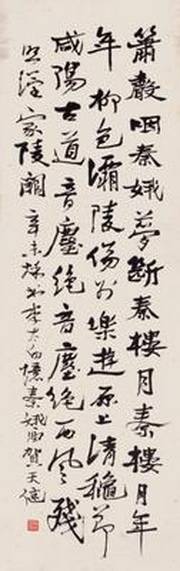 簫聲咽秦娥夢斷秦樓月秦樓月年
年柳色灞陵傷別樂遊原上清穐節
咸陽古道音塵絕音塵絕西風殘
照漢家陵闕 辛未秋書李太白憶秦娥詞賀天健